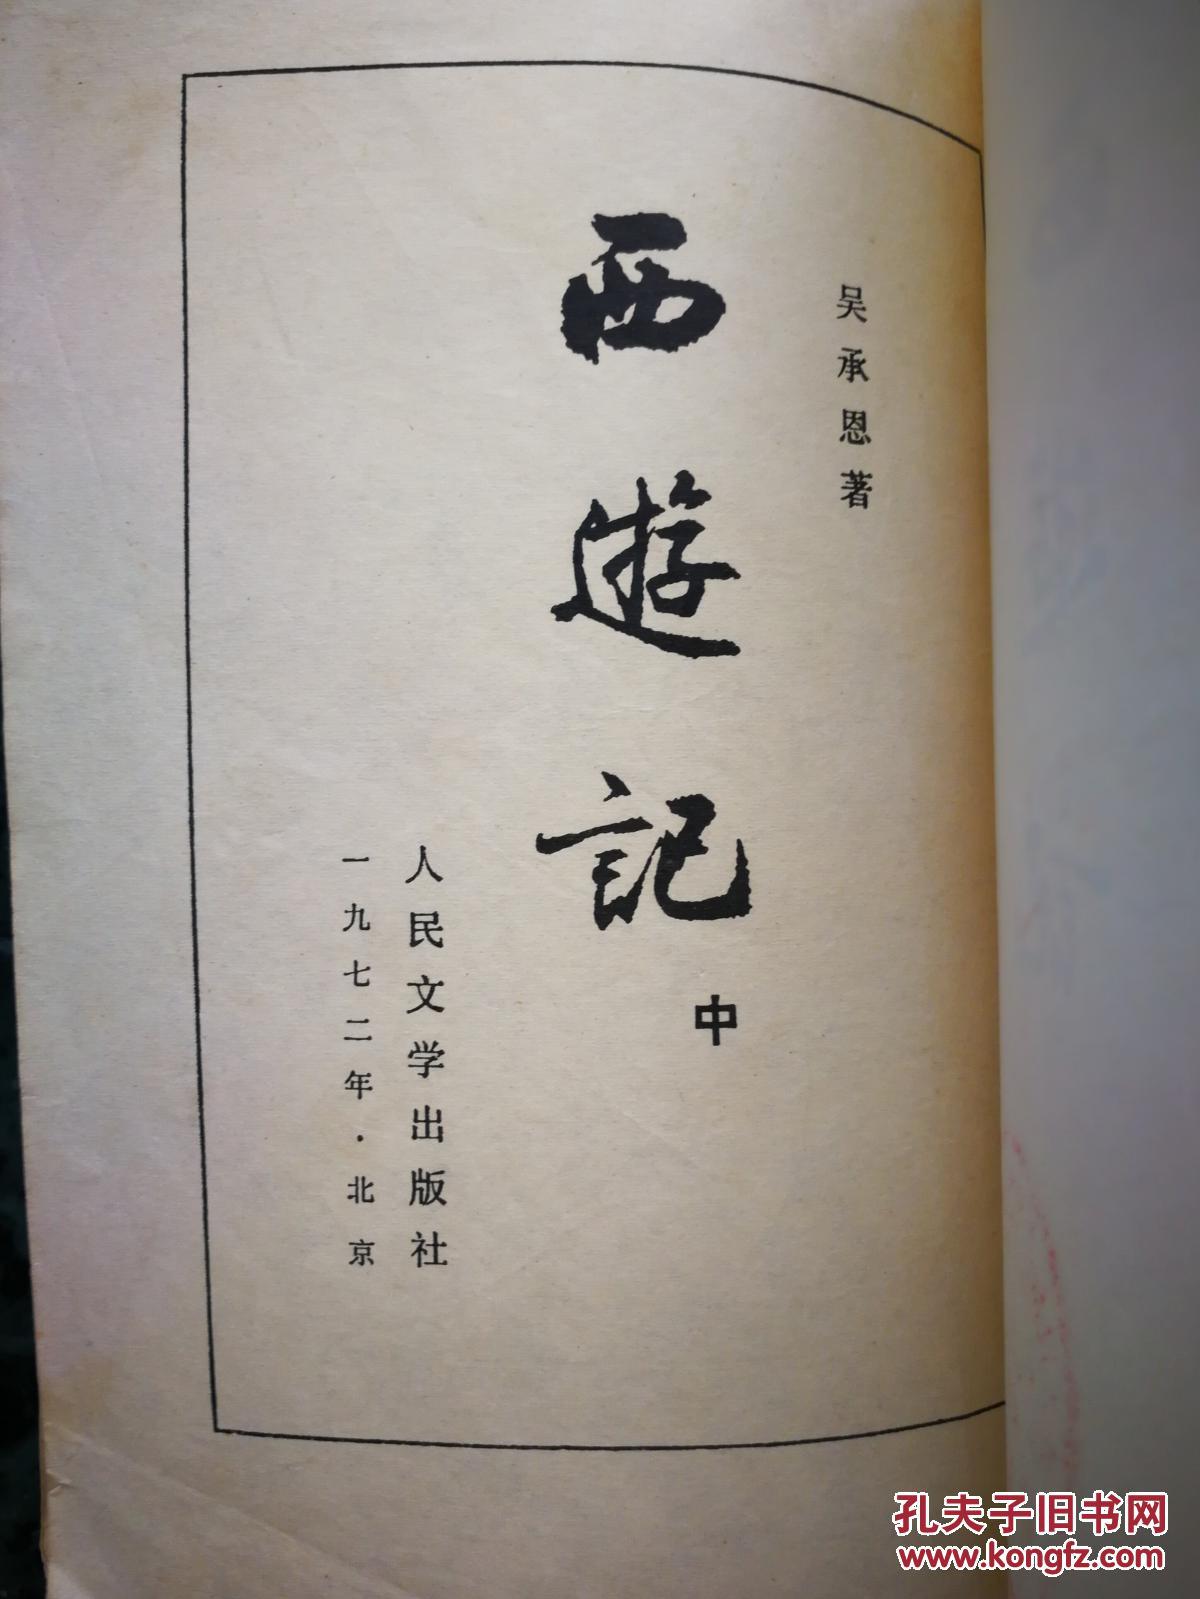 吴承恩著
西遊記
中
人民文学出版社
一九七二年·北京
孔夫子旧书网
www.kongfz.com